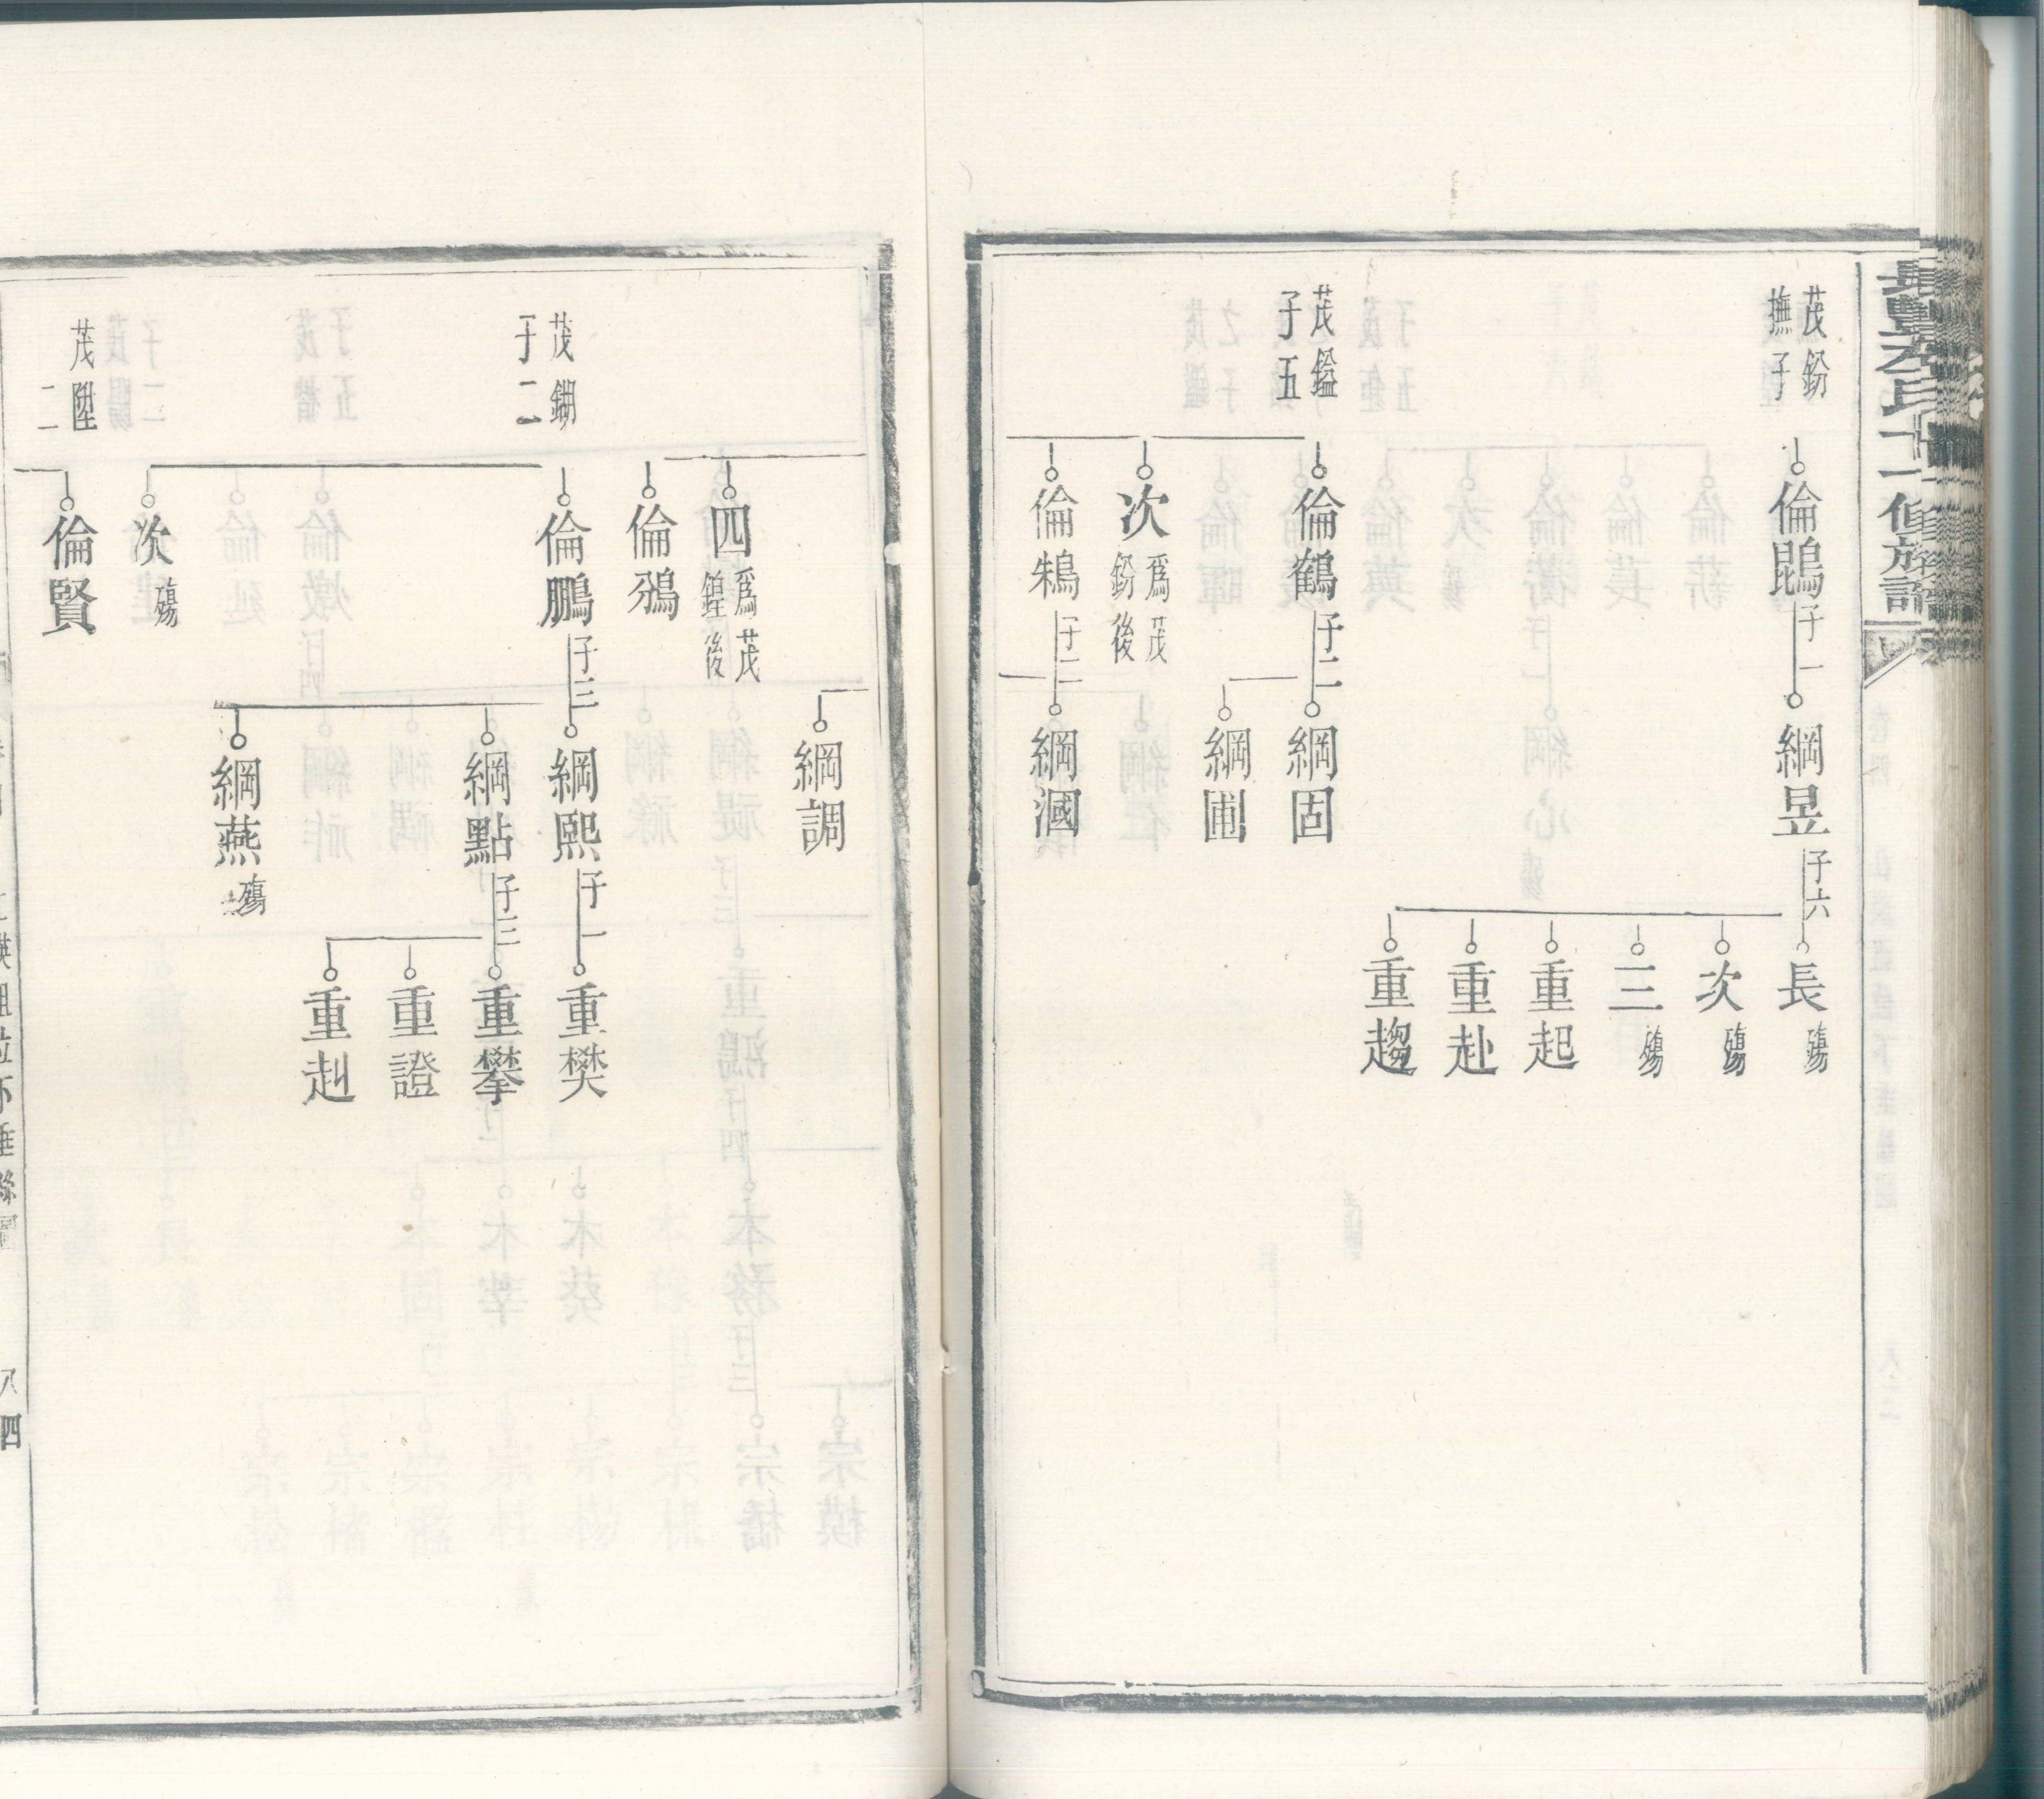 茂鈖
撫子
倫鵾子一
綱昱子六
長殤
次殤
三殤
重起
重赴
重趨
茂鎰
子五
倫鶴子二
綱固
綱圃
次爲茂
鈖後
倫鴸子二
綱漍
綱調
四爲茂
鍟後
倫鵶
茂鎙
子二
倫鵬子三
綱熙子一
重樊
綱點子三
重攀
重證
重赳
綱燕殤
次殤
茂陞
二
倫賢
八四